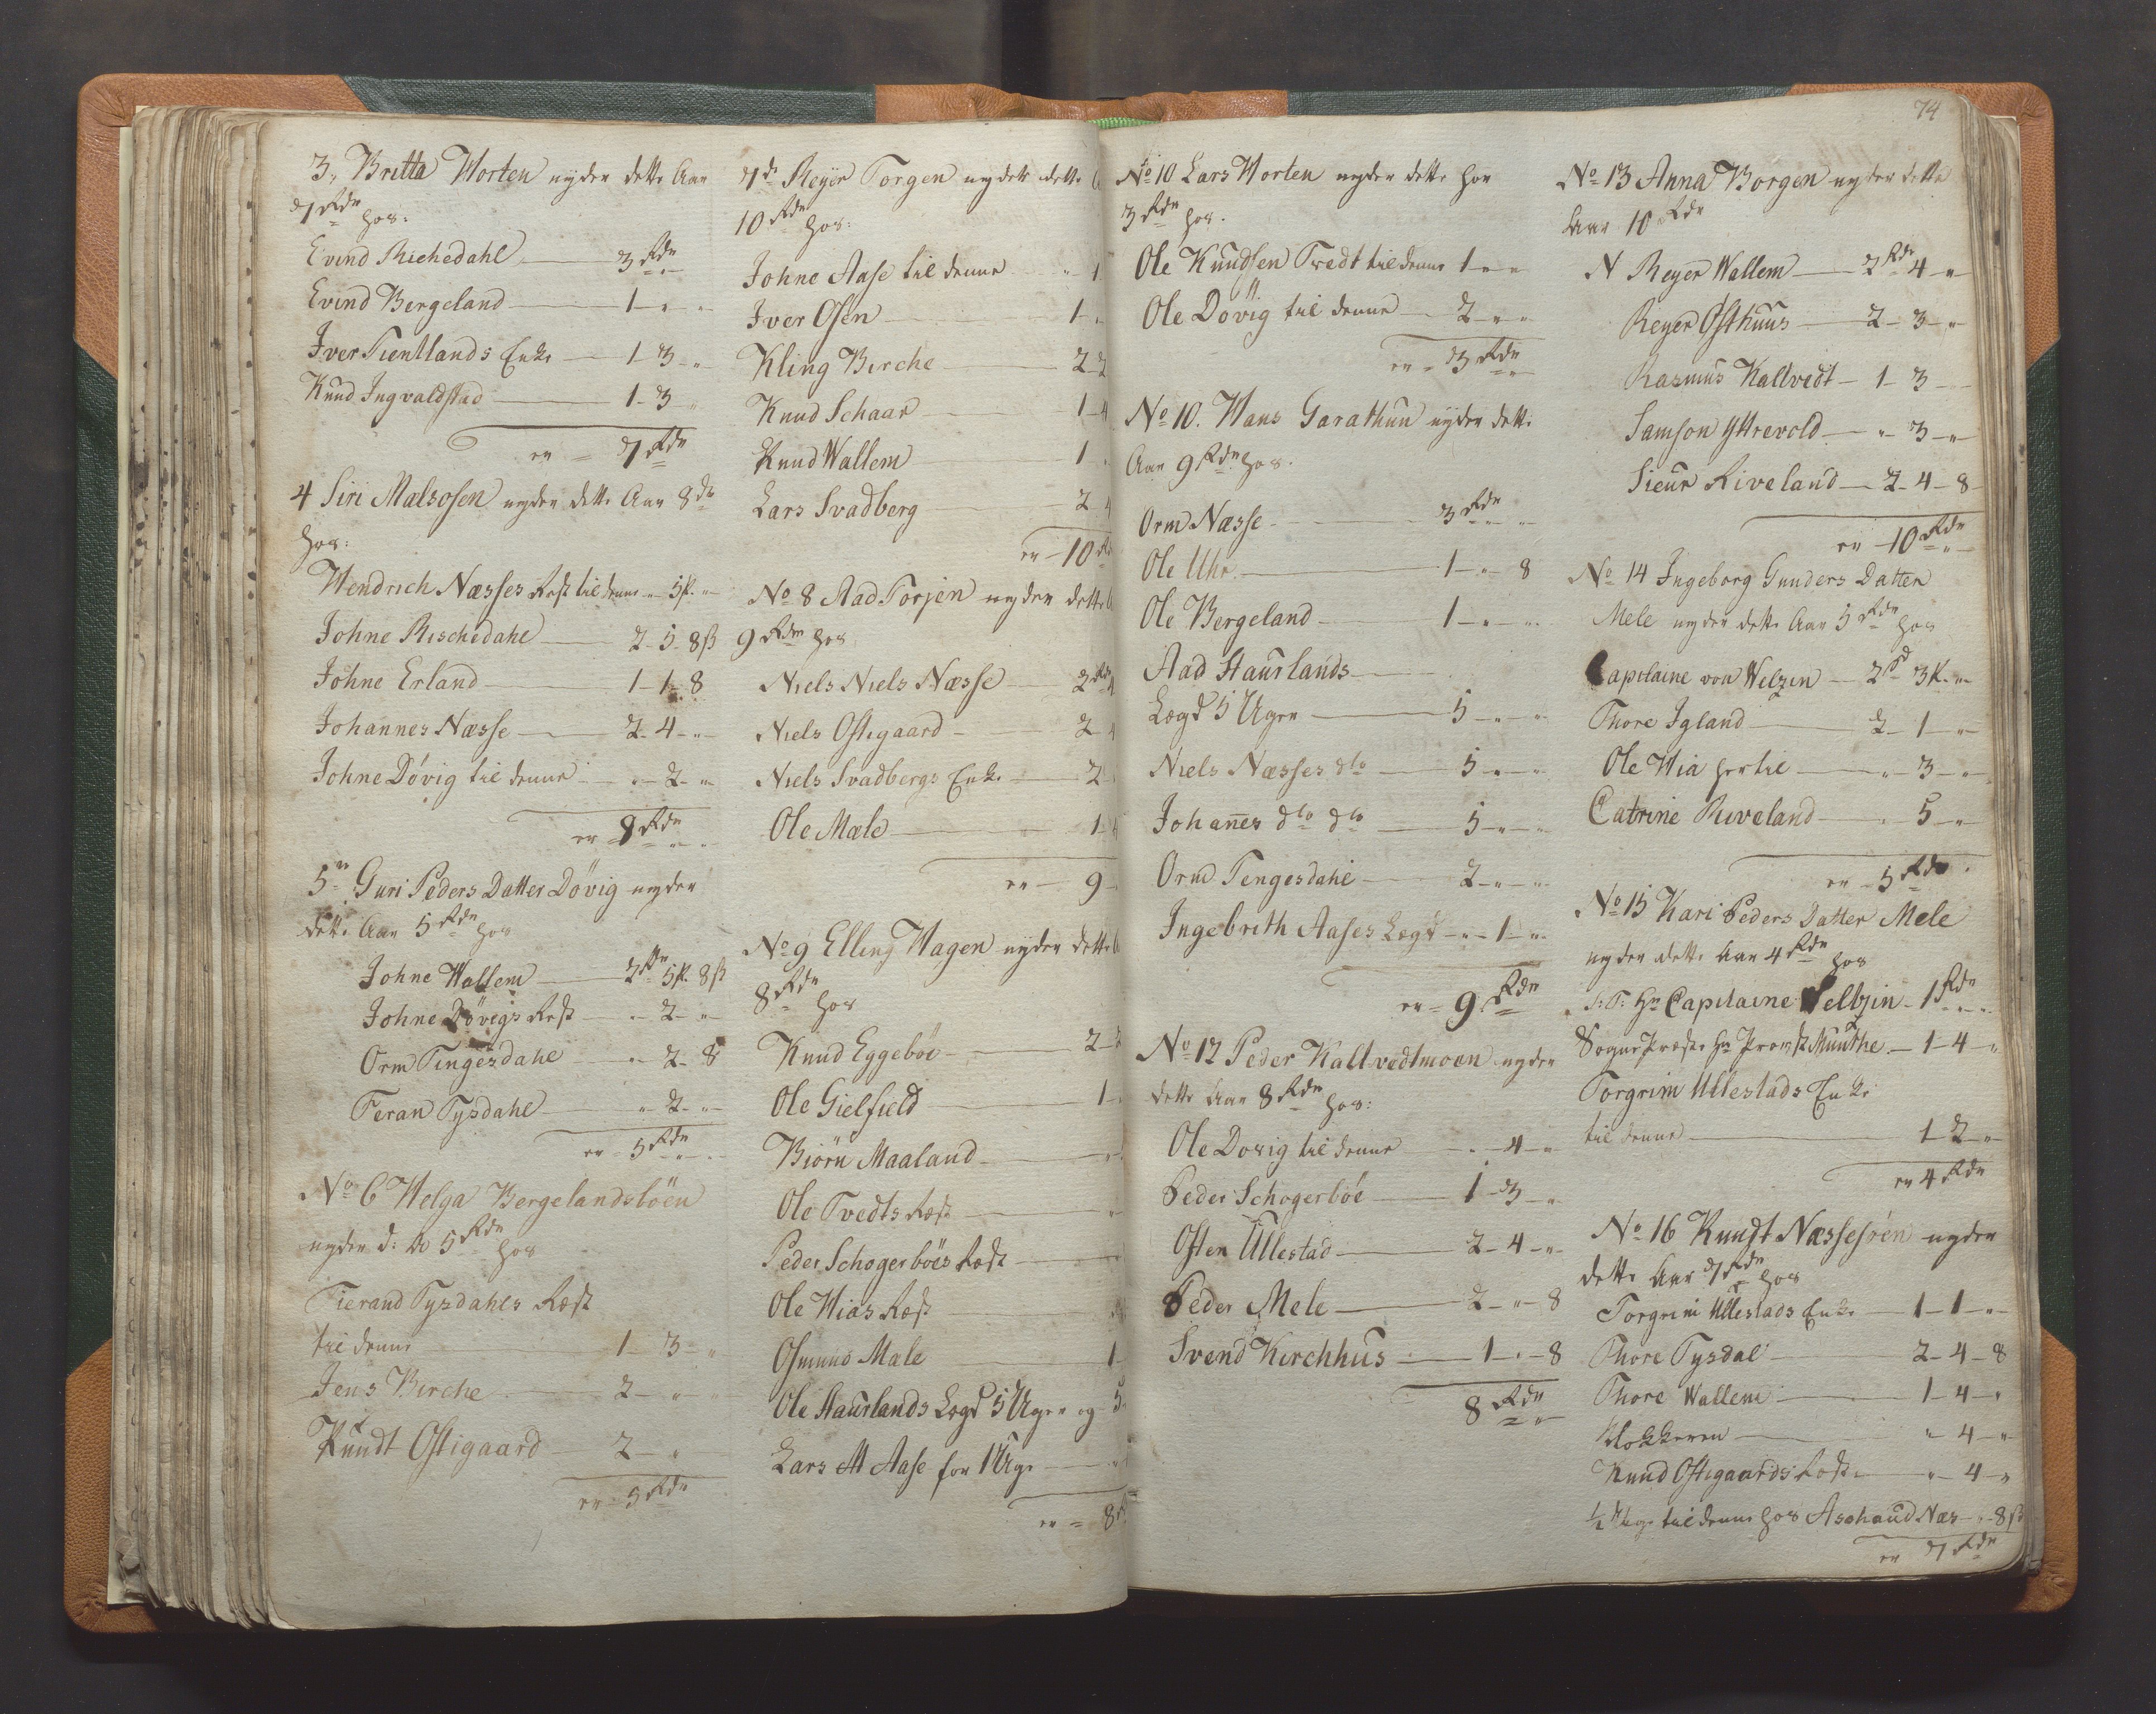 3, Britta Worten nyder dette Aar
7 Rdr hos:
Evind Richedahl 3 Rdr
Evind Bergeland 1 - " - "
Iver Tientlands Enke 1 - 3 - "
Knud Ingvaldstad 1 - 3 "
er - 7 Rdr
4 Siri Malsosen nyder dette Aar 8 dr
hos:
Wendrich Næsses Rest til denne " 5 K. "
Johne Rischedahl 2 - 5 - 8 ß
Johne Erland 1 - 1 - 8
Johannes Næsse 2 - 4 - "
Johne Døvig til denne " - 2 - "
er = 8 Rdr
5 Guri Peders Datter Døvig nyder
dette Aar 5 Rdr hos
Johne Wallem 2 Rdr 5 K. 8 ß
Johne Døvigs Rest " - 2 - "
Orm Tingesdahl " 2 - 8
Teran Tysdahl " - 2 - "
er - 5 Rdr
No 6 Helga Bergelandsbøen
nyder d: A 5 Rdr hos
Tierand Tysdahls Rest
til denne 1 - 3 - "
Jens Birche 2 - " - "
Knudt Ostigaard 2 - "
er - 5 Rdr
7de Reyer Torgen nyder dette
10 Rdr hos:
Johne Aase til denne " 1
Iver Osen 1
Kling Birche 2 - 2
Knud Schaar 1 - 4
Knud Wallem 1
Lars Svadberg 2 - 4
er - 10 R
No 8 Aad Torjen nyder dette
9 Rdr hos
Niels Niels Næsse 2 Rdr
Niels Ostigaard 2 - 4
Niels Svadbergs Enke 2
Ole Mæle 1 - 4
er - 9
No 9 Elling Hagen nyder dette
8 Rdr hos
Knud Eggebøe 2
Ole Gielfield 1
Biørn Maaland "
Ole Tvedts Rest "
Peder Schogerbøes Rest
Ole Wias Rest
Osmund Mæle 1
Ole Haurlands Lægd 5 Uger og 5
Lars Aase for 1 Uge "
er = 8
74
No 10 Lars Worten nyder dette hos
3 Rdr hos.
Ole Knudsen Tvedt til denne 1 " "
Ole Døvig til denne 2 - " - "
er = 3 Rdr
No 10. Hans Garathun nyder dette
Aar 9 Rdr hos.
Orm Næsse 3 Rdr "
Ole Uhr 1 - " - 8
Ole Bergeland 1 - " - "
Aad Haurlands
Lægd 5 Uger 5 - " - "
Niels Næsses dto 5 - " - "
Johannes dto dto 5 - " - "
Orm Tengesdahl 2 - " - "
Ingebrith Aases Lægd " - 1 - "
er = 9 Rdr
No 12 Peder Kaltvedtmoen nyder
dette Aar 8 Rdr hos:
Ole Dovig til denne " - 4 - "
Peder Schogerbøe 1 - 3 - "
Osten Ullestad 2 - 4 - "
Peder Mele 2 - " - 8
Svend Kirchhus 1 - " - 8
8 Rdr
No 13 Anna Borgen nyder dette
Aar 10 Rdr
N Reyer Wallem 2 Rdr 4 - "
Reyer Østhuus 2 - 3 - "
Rasmus Kallvedt - 1 - 3 -
Samson Yttrevold " - 3 - "
Sieur Riveland 2 - 4 - 8
er - 10 Rdr
No 14 Ingeborg Gunders Datter
Mele nyder dette Aar 5 Rdr hos
Capitaine von Welzin 2 Rd 3 K. "
Thore Igland 2 - 1 - "
Ole Wia hertil " - 3 - "
Catrine Riveland " 5 - "
er - 5 Rdr
No 15 Kari Peders Datter Mele
nyder dette Aar 4 Rdr hos
S: T: Hr Capitaine Velzin - 1 Rdr
Sogne Præst Hr Provst Munthe 1 - 4 - "
Torgrim Ullestads Enke
til denne 1 - 2 - "
er 4 Rdr
No 16 Knudt Næssesøen nyder
dette Aar 7 Rdr hos
Torgrim Ullestads Enke 1 - 1 - "
Thore Tysdal 2 - 4 - 8
Thore Wallem 1 - 4 - "
Klokkeren " - 4 - "
Knud Ostigaards Rest " - 4 - "
1/2 Uge til denne hos Asshaud Næs - " - 8 ß
er 7 Rdr